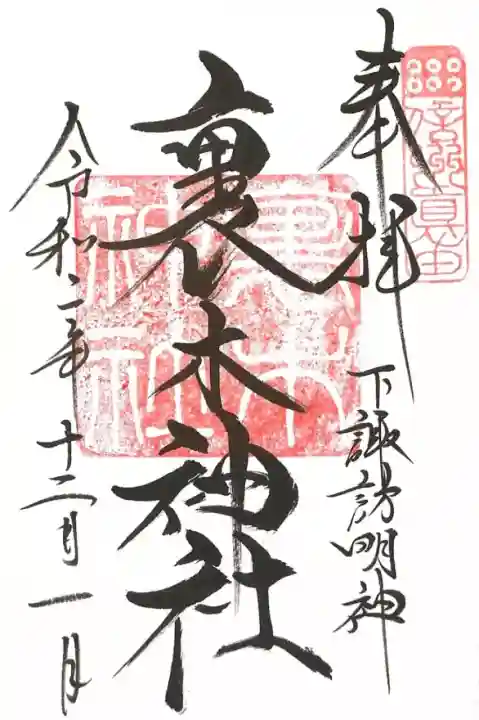 奉拝 下諏訪明神
裏木神社
令和二年十二月一日
裏木神社